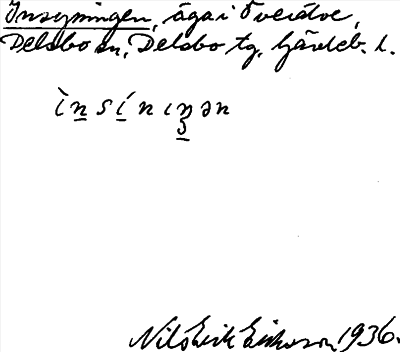 Insyningen, äga i Överälve,
Delsbo sn, Delsbo tg, Gävleb. l.
ìnsínıŋən
Nils Erik Eriksson 1936.